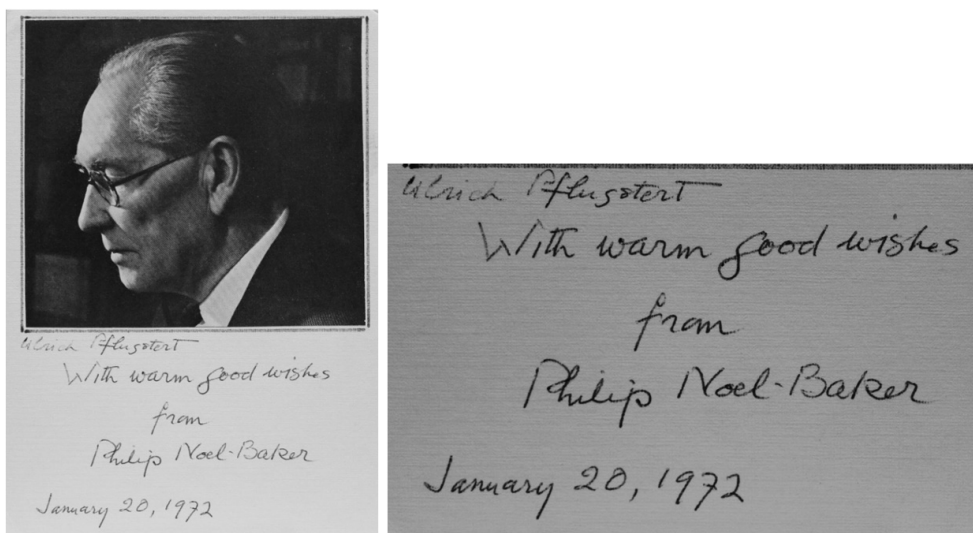 Ulrich Pflugstert
With warm good wishes
from
Philip Noel-Baker
January 20, 1972
Ulrich Pflugstert
With warm good wishes
from
Philip Noel-Baker
January 20, 1972